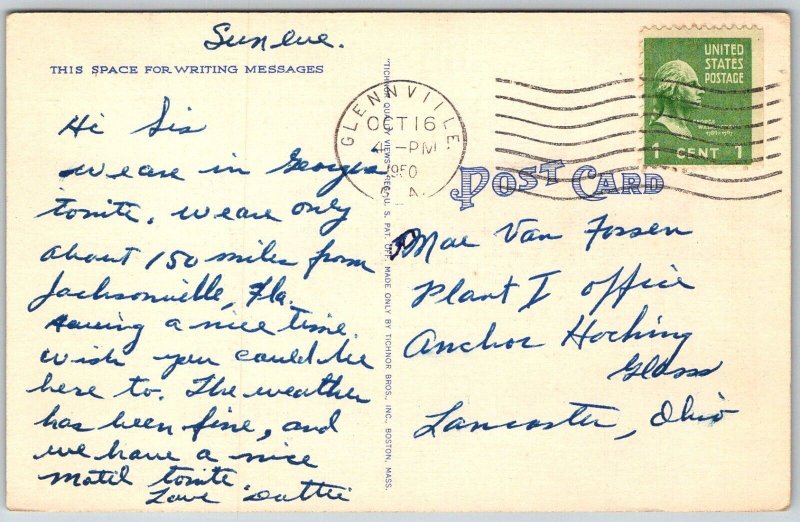 Sun eve.
THIS SPACE FOR WRITING MESSAGES
Hi Sis
We are in Georgia
tonite, we are only
about 150 miles from
Jacksonville, Fla.
Having a nice time.
Wish you could be
here to. The weather
has been fine, and
we have a nice
motel tonite.
Love Dottie
"TICHNOR QUALITY VIEWS," REG. U. S. PAT. OFF. MADE ONLY BY TICHNOR BROS., INC., BOSTON, MASS.
GLENNVILLE.
OCT 16
4 - PM
1950
GA.
UNITED
STATES
POSTAGE
1 CENT 1
POST CARD
Mae Van Fossen
Plant I office
Anchor Hocking
Glass
Lancaster, Ohio